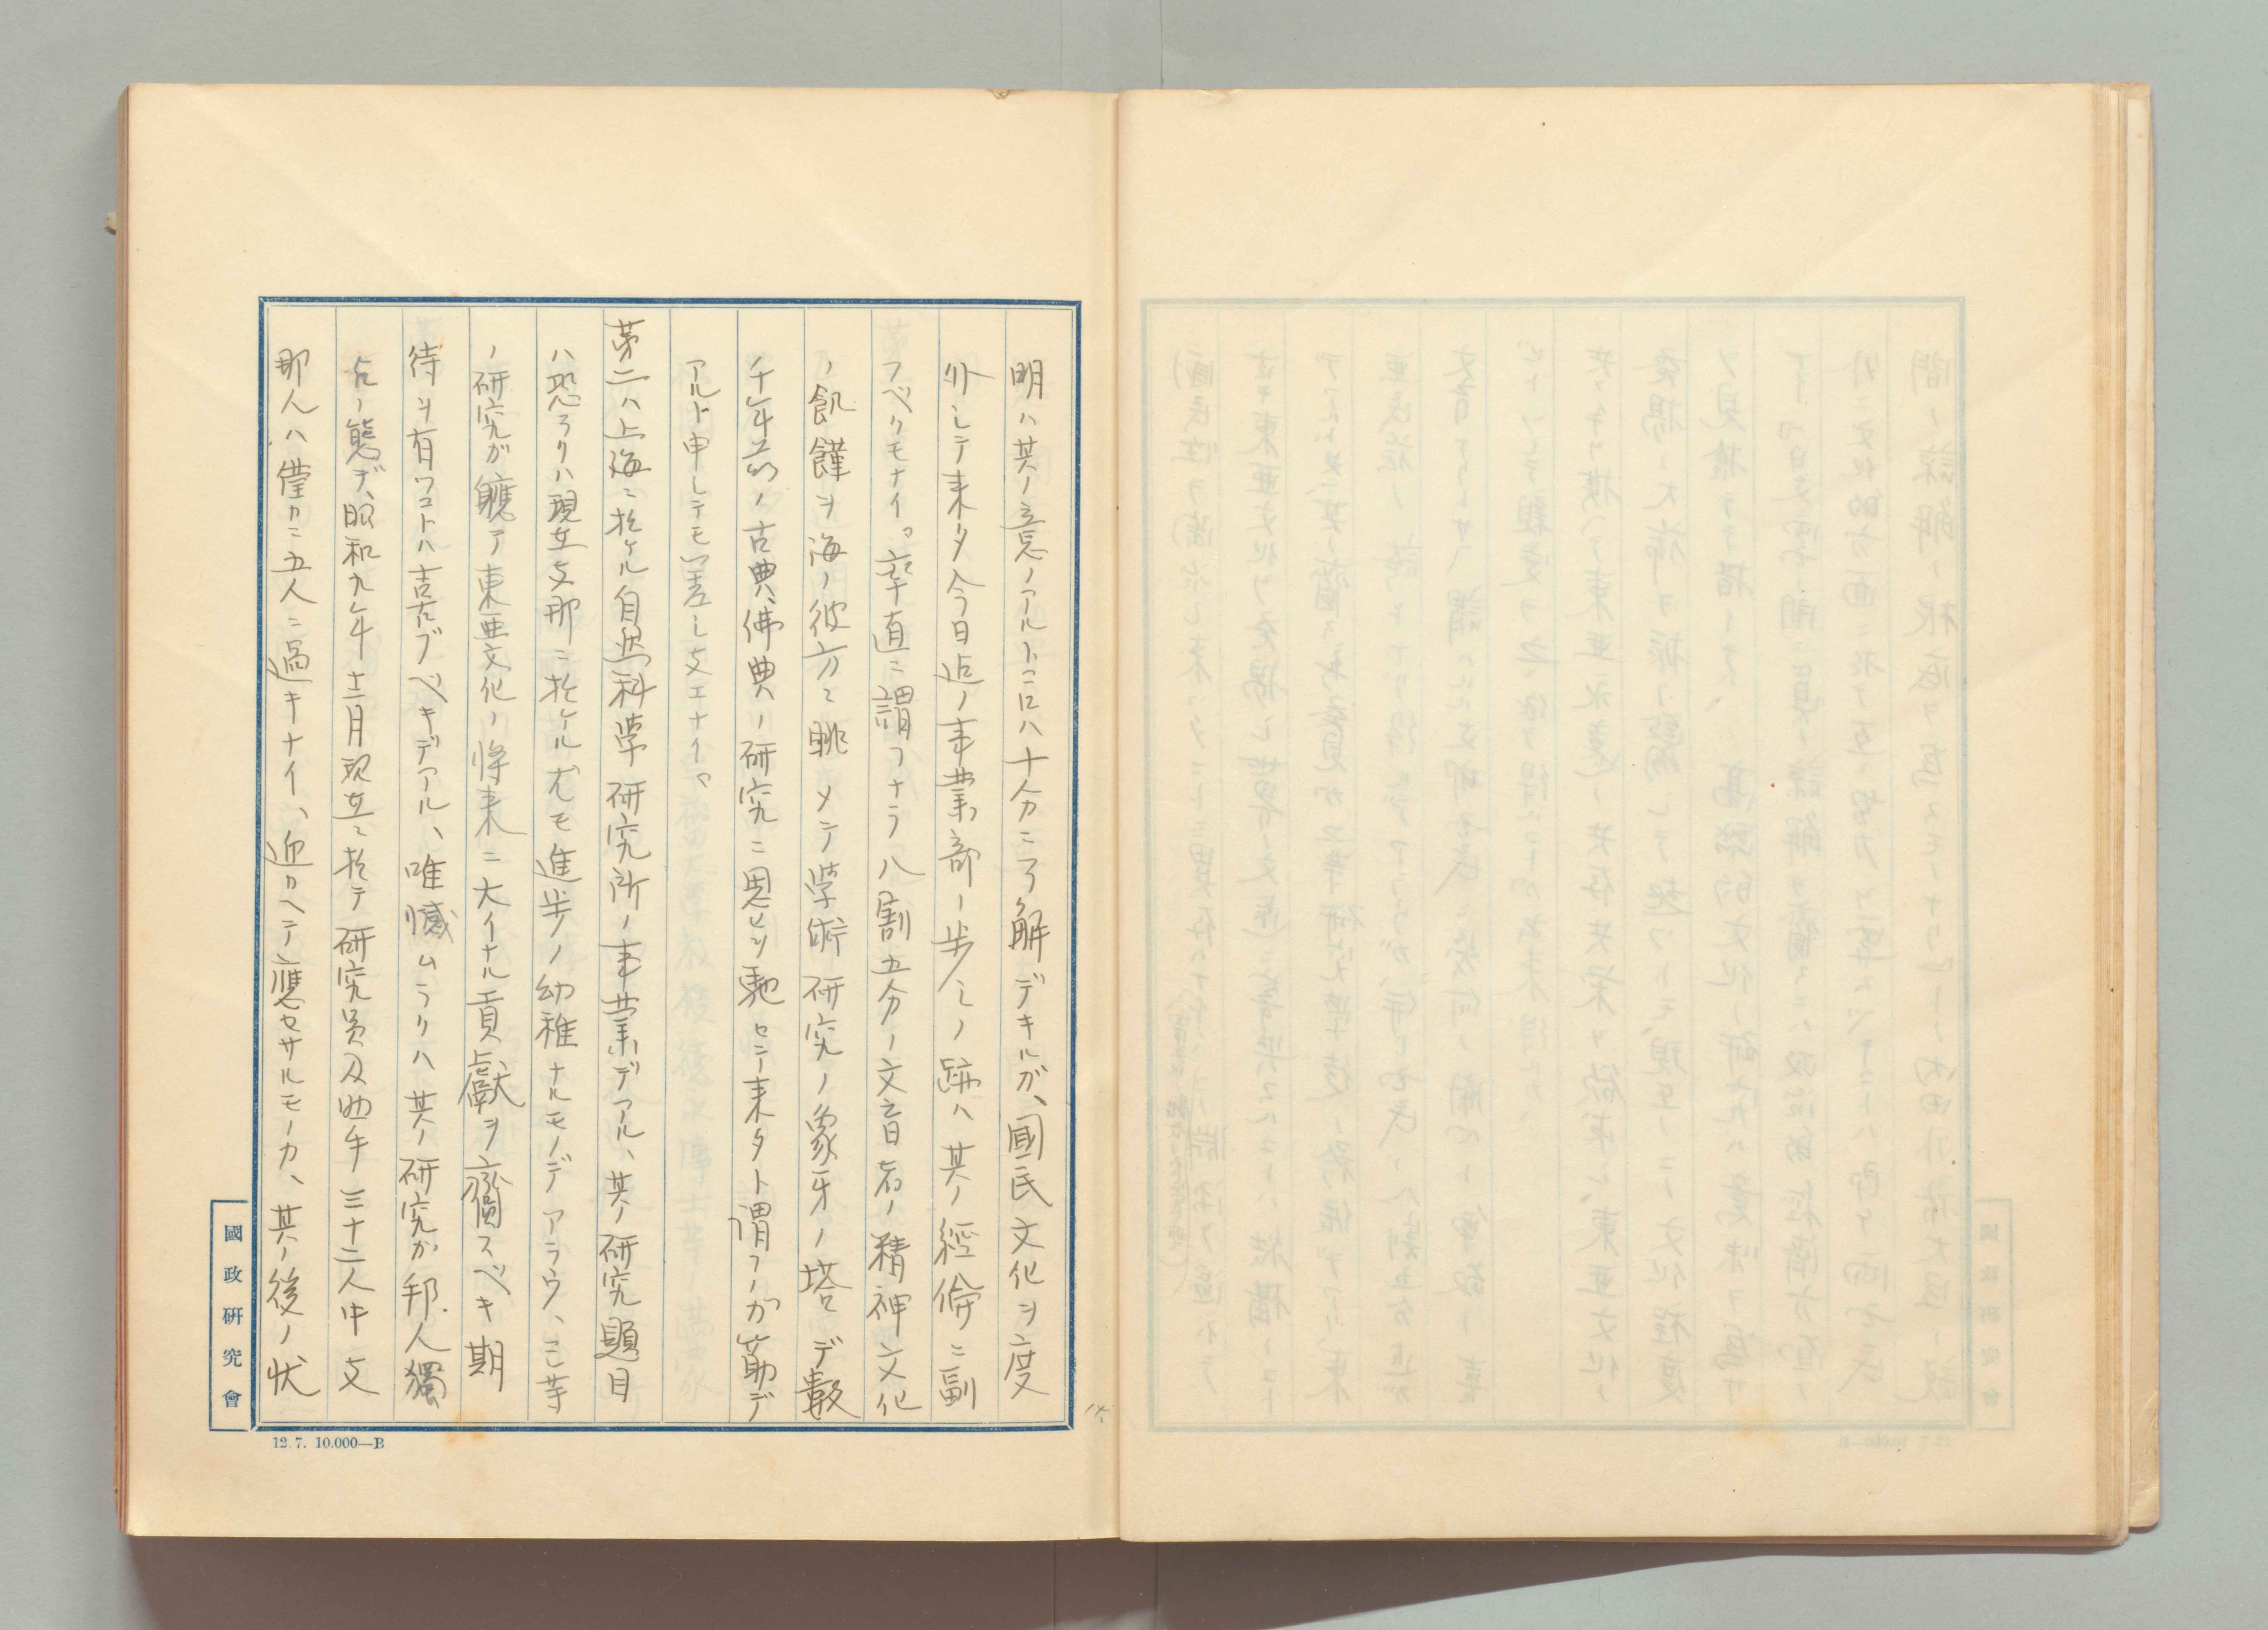 明ハ其ノ意ノアルトコロハ十分ニ了解デキルガ、國民文化ヲ度
外シテ来タ今日迄ノ事業部ノ歩ミノ跡ハ其ノ經倫ニ副
フベクモナイ。卒直ニ謂フナラ八割五分ノ文盲者ノ精神文化
ノ飢饉ヲ海ノ彼方ニ眺メテ学術研究ノ象牙ノ塔デ數
千年前ノ古典、佛典ノ研究ニ思ヒヲ馳セニ来タト謂フノガ筋デ
アルト申シテモ差シ支エナイ。
第二ハ上海ニ於ケル自然科学研究所ノ事業デアル、其ノ研究題目
ハ恐ラクハ現在支那ニ於ケル尤モ進歩ノ幼稚ナルモノデアラウ、之等
ノ研究が軈テ東亜文化ノ将来ニ大イナル貢獻ヲ齎スベキ期
待ヲ有ツコトハ吉左ブベキデアル、唯憾ムラクハ其ノ研究が邦人獨
占ノ態デ、昭和九年十二月現在ニ於テ研究員及助手三十二人中支
那人ハ僅カニ五人ニ過キナイ、迎カヘテ應セサルモノカ、其ノ後ノ状
國政研究會
12.7. 10.000—B